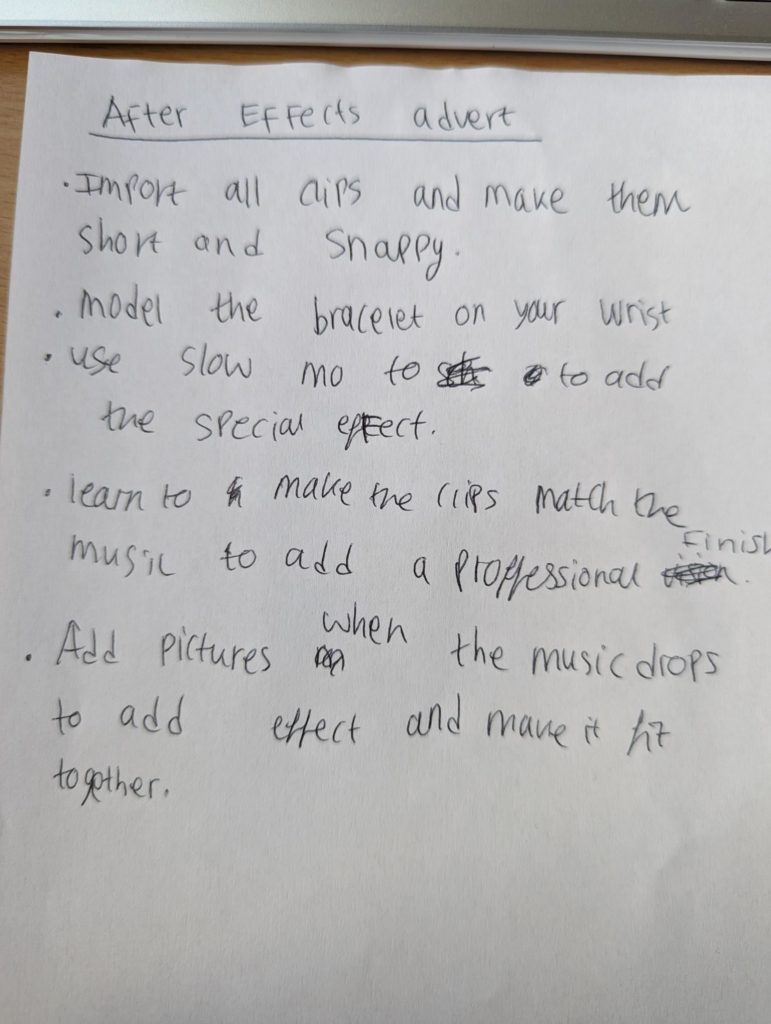 After Effects advert
· Import all clips and make them
short and snappy.
· model the bracelet on your wrist
· use slow mo to to add
the special effect.
· learn to make the clips match the
music to add a proffessional finish.
· Add pictures when the music drops
to add effect and make it fit
together.